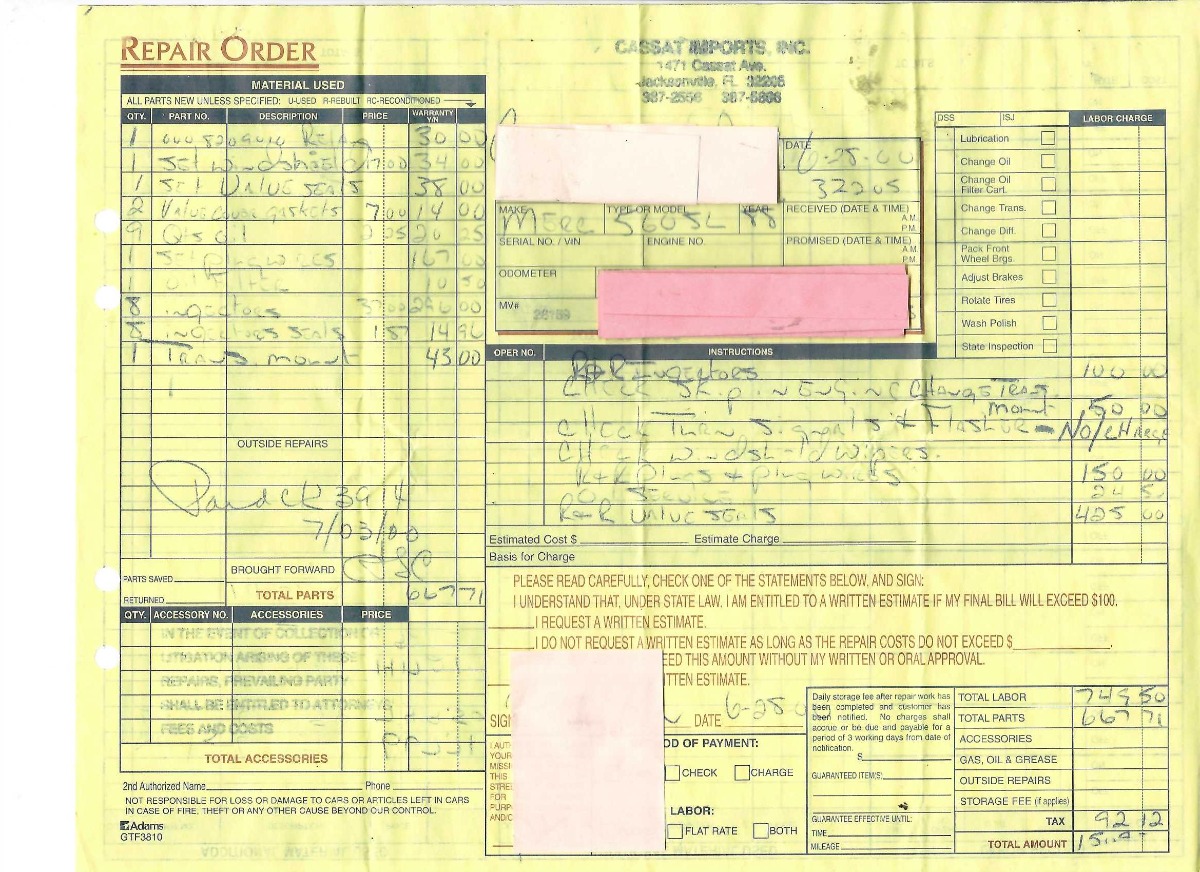 REPAIR ORDER
CASSAT IMPORTS, INC.
1471 Cassat Ave.
Jacksonville, FL 32205
387-2556 387-5806
MATERIAL USED
ALL PARTS NEW UNLESS SPECIFIED: U-USED R-REBUILT RC-RECONDITIONED
QTY. PART NO. DESCRIPTION PRICE WARRANTY Y/N
1 30 00
1 SET windshield 17 00 34 00
1 SET VALVE SEALS 38 00
2 Valve cover gaskets 7 00 14 00
9 Qts oil 20 25
1 set plug wires 167 00
1 oil filter 10 50
8 ingectors 37 00 296 00
8 ingectors seals 1 87 14 96
1 Trans. mount 43 00
OUTSIDE REPAIRS
Paid ck 3914
7/03/00
PARTS SAVED
BROUGHT FORWARD
RETURNED
TOTAL PARTS 667 71
QTY. ACCESSORY NO. ACCESSORIES PRICE
IN THE EVENT OF COLLECTION OR
LITIGATION ARISING OF THESE
REPAIRS, PREVAILING PARTY
SHALL BE ENTITLED TO ATTORNEYS
FEES AND COSTS
TOTAL ACCESSORIES
2nd Authorized Name Phone
NOT RESPONSIBLE FOR LOSS OR DAMAGE TO CARS OR ARTICLES LEFT IN CARS
IN CASE OF FIRE, THEFT OR ANY OTHER CAUSE BEYOND OUR CONTROL.
Adams
GTF3810
DATE 6-28-00
32205
MAKE TYPE OR MODEL YEAR RECEIVED (DATE & TIME)
MERC 560SL 88 A.M.
P.M.
SERIAL NO. / VIN ENGINE NO. PROMISED (DATE & TIME)
A.M.
P.M.
ODOMETER
MV# 26159
DSS ISJ LABOR CHARGE
Lubrication
Change Oil
Change Oil Filter Cart.
Change Trans.
Change Diff.
Pack Front Wheel Brgs.
Adjust Brakes
Rotate Tires
Wash Polish
State Inspection
OPER NO. INSTRUCTIONS
R+R INGECTORS 100 00
CHECK Skip in ENGINE CHANGE TRANS.
mount 50 00
CHECK Turn Signals + Flasher - No/CHARGE
CHECK windshield wipers.
R+R Plugs + plug wires 150 00
SERVICE 24 50
R+R VALVE SEALS 425 00
Estimated Cost $ Estimate Charge
Basis for Charge
PLEASE READ CAREFULLY, CHECK ONE OF THE STATEMENTS BELOW, AND SIGN:
I UNDERSTAND THAT, UNDER STATE LAW, I AM ENTITLED TO A WRITTEN ESTIMATE IF MY FINAL BILL WILL EXCEED $100.
I REQUEST A WRITTEN ESTIMATE.
I DO NOT REQUEST A WRITTEN ESTIMATE AS LONG AS THE REPAIR COSTS DO NOT EXCEED $
EED THIS AMOUNT WITHOUT MY WRITTEN OR ORAL APPROVAL.
ITTEN ESTIMATE.
SIGN DATE 6-28 0
I AUTH
YOUR
MISSI
THIS
STREE
FOR
PURP
AND/O
OD OF PAYMENT:
CHECK CHARGE
LABOR:
FLAT RATE BOTH
Daily storage fee after repair work has
been completed and customer has
been notified. No charges shall
accrue or be due and payable for a
period of 3 working days from date of
notification.
$
GUARANTEED ITEM(S)
GUARANTEE EFFECTIVE UNTIL:
TIME
MILEAGE
TOTAL LABOR 749 50
TOTAL PARTS 667 71
ACCESSORIES
GAS, OIL & GREASE
OUTSIDE REPAIRS
STORAGE FEE (if applies)
TAX 92 12
TOTAL AMOUNT